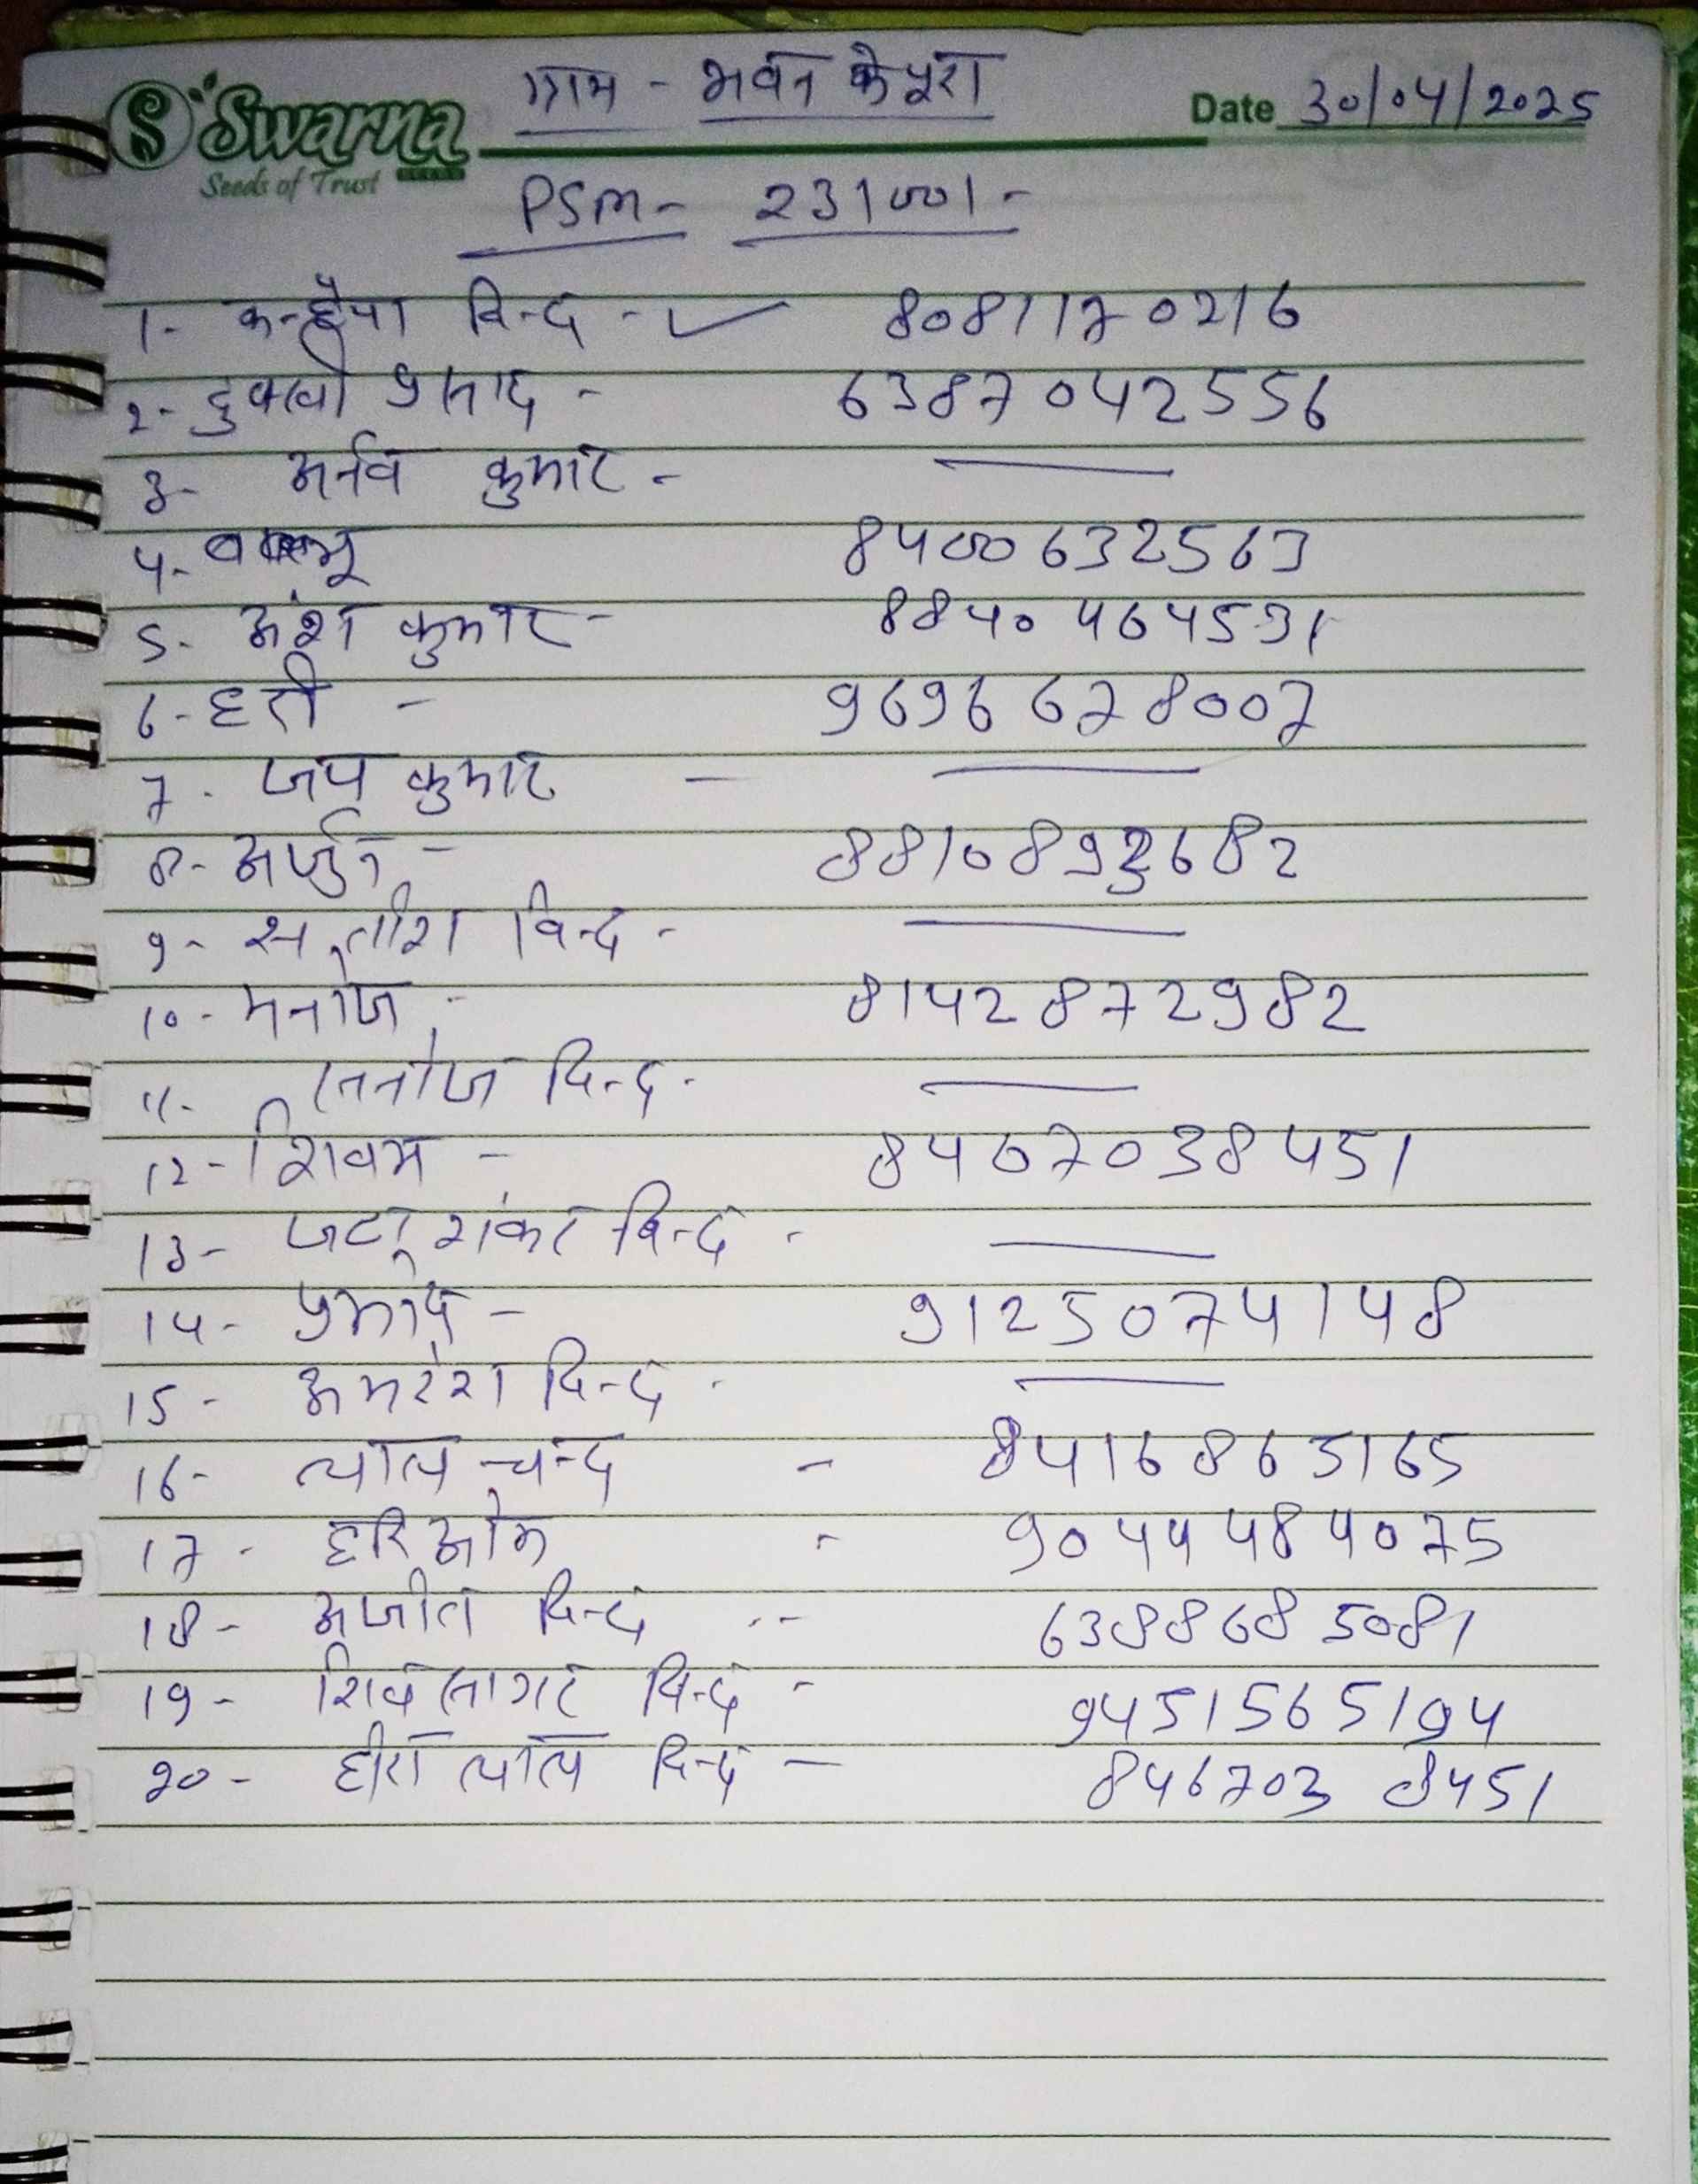 ग्राम - भवन के पूरा
Swarna
Seeds of Trust
Date 30/04/2025
PSM - 231001 -
1- कन्हैया बिन्द - ✓ 8081170216
2- दुक्खी प्रसाद - 6387042556
3- अर्नव कुमार - —
4- 8400632563
5- अंश कुमार - 8840464531
6- हरी - 9696678007
7- जय कुमार - —
8- अर्जुन - 8810893682
9- सतीश बिन्द - —
10- मनोज - 8142872982
11- सनोज बिन्द - —
12- शिवम - 8467038451
13- जटा शंकर बिन्द - —
14- प्रमोद - 9125074148
15- अमरेश बिन्द - —
16- लाल चन्द - 8416863165
17- हरिओम - 9044484075
18- अजीत बिन्द - 6388685081
19- शिव सागर बिन्द - 9451565194
20- हीरा लाल बिन्द - 8467038451